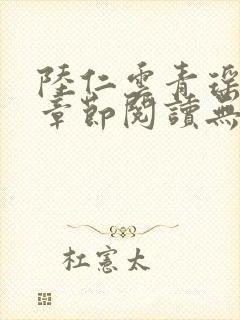 陸仁雲青瑶
章節閱讀無
杜憲太